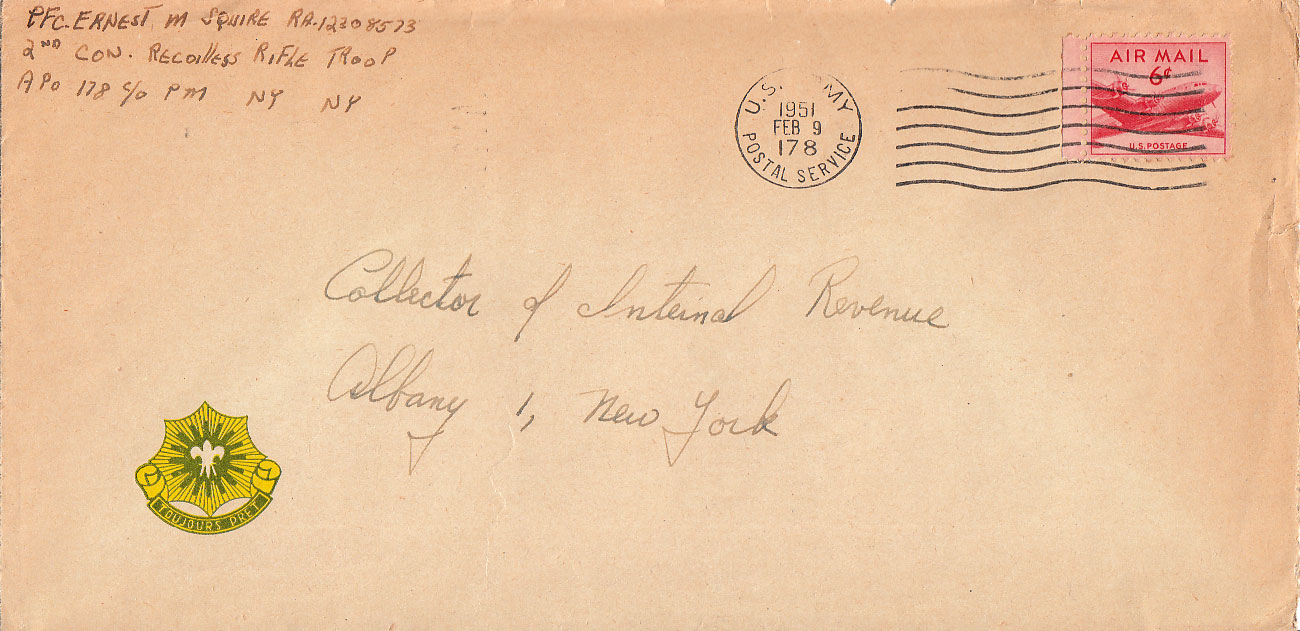 PFC. ERNEST M SQUIRE RA.12308573
2ND CON. RECOILLESS RIFLE TROOP
APO 178 c/o PM NY NY
U.S. MY
1951
FEB 9
178
POSTAL SERVICE
AIR MAIL
6¢
U.S. POSTAGE
Collector of Internal Revenue
Albany 1, New York
TOUJOURS PRET